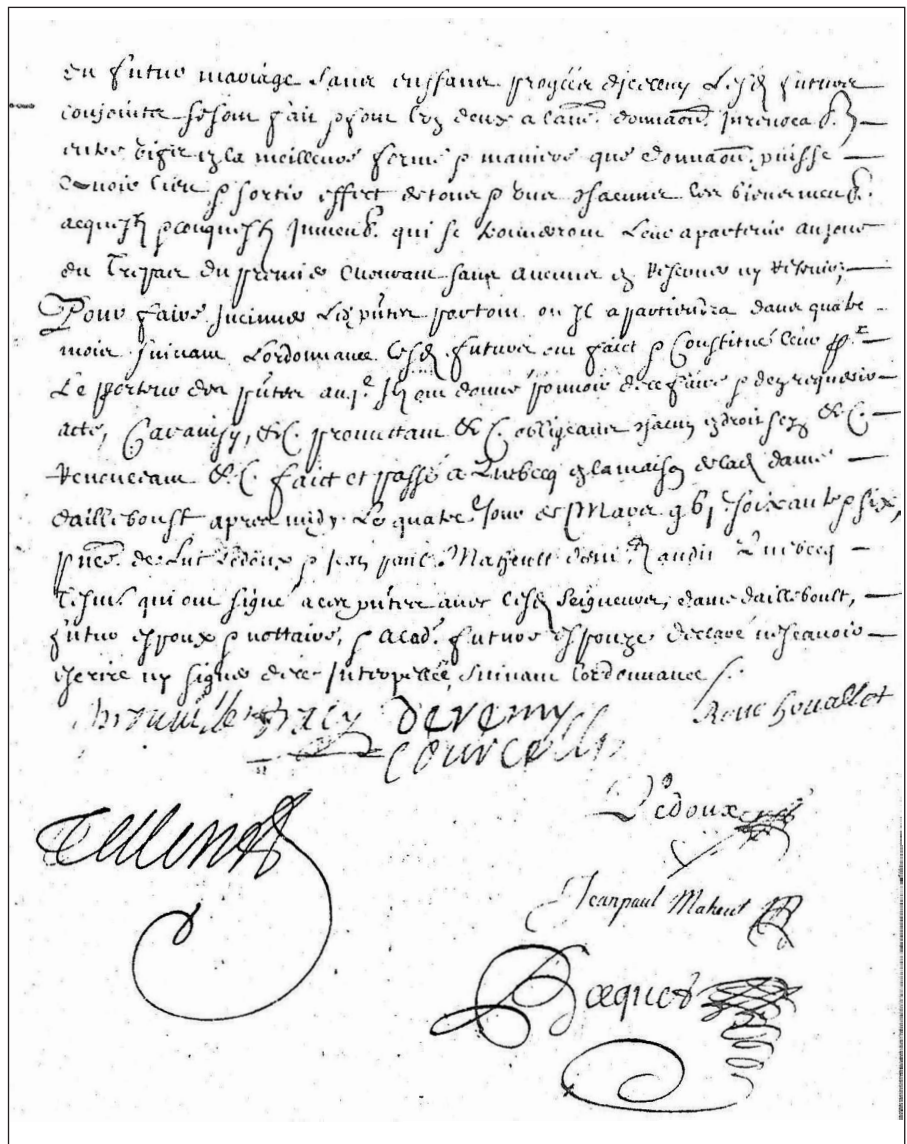 du futur mariage sans enfans procréez d'icelluy Lesd futurs
conjoints se sont fait p font lez deux a lautre donnaon. Irrevocab.
entre vifz en la meilleure forme p maniere que donnaon. puisse
avoir lieu p sortir effect de tous p un chacuns les biens meub.
acquestz p conquestz Immeub. qui se trouveront Leur apartenir au jour
du Trepas du premier mourant sans aucune en Reserver ny Retenir,
Pour faire Incinuer Les pntes partout ou Il apartiendra dans quatre
mois suivant Lordonnance Lesd. futurs ont faict p Constitué leur pr
Le porteur des pntes auql. Ilz ont donné pouvoir de ce faire p den requerir
acte, Car ainsy, &C. promettant &C. obligeant chacun en droit soy &C.
Renonceant &C. faict et passé a Quebecq en la maison de lad dame
dailleboust apres midy Le quatre. Jour de Mars. g bj. soixante p six,
pnce. de Luc Ledoux p jean paul. Maheult dem. audit Quebecq
Tesmi. qui ont signé a ces pntes avec Lesd Seigneurs, dame dailleboult,
futur espoux p nottaire, p a Lad. future espouze declaré ne scavoir
escrire ny signer de ce Interpellée suivant Lordonnance
Prouville Tracy Deremy Rene houallet
Courcelles
Ledoux
Talon
Jeanpaul Maheut
Becquet